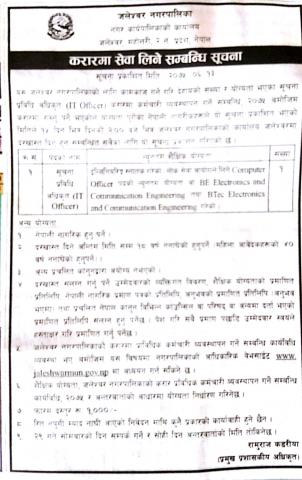 जलेश्वर नगरपालिका
नगर कार्यपालिकाको कार्यालय
जलेश्वर महोत्तरी २ न. प्रदेश, नेपाल
करारमा सेवा लिने सम्बन्धि सूचना
सूचना प्रकाशित मिति २०७७ ०६ ११
यस जलेश्वर नगरपालिकाको लागि कामकाज गर्ने गरि देहायको संख्या र योग्यता भएका सूचना
प्रविधि अधिकृत (IT Officer) करारमा कर्मचारी व्यवस्थापन गर्ने सम्बन्धि २०७७ बमोजिम
करारमा राख्नु पर्ने भएकोले योग्यता पुगेका नेपाली नागरिकहरुले यो सूचना प्रकाशित भएको
मितिले १५ दिन भित्र दिनको ५ ०० बजे भित्र जलेश्वर नगरपालिकाको कार्यालय जलेश्वरमा
दरखास्त दिन हुन सम्बन्धित सबैका लागि यो सूचना गरिएको छ।
क्र.सं. पदको नाम न्युनतम शैक्षिक योग्यता संख्या
१ सूचना प्रविधि अधिकृत (IT Officer) इन्जिनियरिङ्ग स्नातक गरेको लोक सेवा आयोगले लिने Computer Officer पदको न्युनतम योग्यता वा BE Electronics and Communication Engineering तथा BTec Electronics and Communication Engineering गरेको । १
अन्य योग्यता
१. नेपाली नागरिक हुनु पर्ने ।
२. दरखास्त दिने अन्तिम मिति सम्म १८ वर्ष ननाघेको हुनुपर्ने महिला आवेदकहरुको ४०
वर्ष ननाघेको हुनुपर्ने ।
३. अन्य प्रचलित कानुनद्वारा अयोग्य नभएको ।
४. दरखास्त संलग्न गर्नु पर्ने उम्मेदवारको व्यक्तिगत विवरण, शैक्षिक योग्यताको प्रमाणित
प्रतिलिपि नेपाली नागरिक प्रमाण पत्रको प्रतिलिपि, अनुभवको प्रमाणित प्रतिलिपि (अनुभव
भएमा) तथा प्रचलित नेपाल कानुन विभिन्न काउन्सिल वा परिषद वा अन्यमा दर्ता भएको
प्रमाणित प्रतिलिपि संलग्न हुनु पर्नेछ । पेश गरि सबै प्रमाण पछाडि उम्मेदवार स्वयंले
हस्ताक्षर गरि प्रमाणित गर्नु पर्नेछ ।
५. जलेश्वर नगरपालिकाको करारमा प्राविधिक कर्मचारी व्यवस्थापन गर्ने सम्बन्धि कार्यविधि
व्यवस्था भए बमोजिम यस विषयमा नगरपालिकाको आधिकारिक वेभसाईट www.
jaleshwarmun.gov.np मा अध्ययन गर्न सकिने छ ।
६. शैक्षिक योग्यता, जलेश्वर नगरपालिकाको करार प्राविधिक कर्मचारी व्यवस्थापन गर्ने सम्बन्धि
कार्यविधि, २०७७ र अन्तरवार्ताको आधारमा योग्यता निर्धारण गरिनेछ ।
७. फाराम दस्तुर रु १,०००/-
८. रित नपुगी म्याद नाघी आएको निवेदन माथि कुनै प्रकारको कार्यवाही हुने छैन ।
९. २९ गते सोमबारको दिन सम्पर्क गर्ने र सोही दिन अन्तरवार्ताको मिति तोकिनेछ ।
रामुराज कडरीया
(प्रमुख प्रशासकीय अधिकृत)